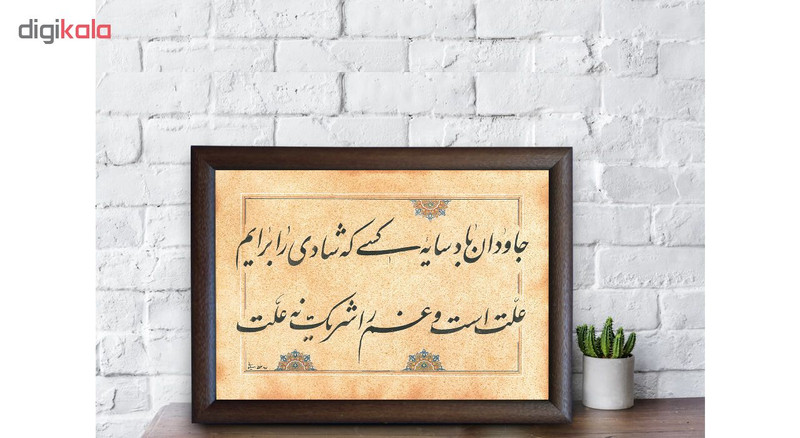 digikala
جاودان باد سایه کسی که شادی را برایم
علّت است و غم را شریک نه علّت